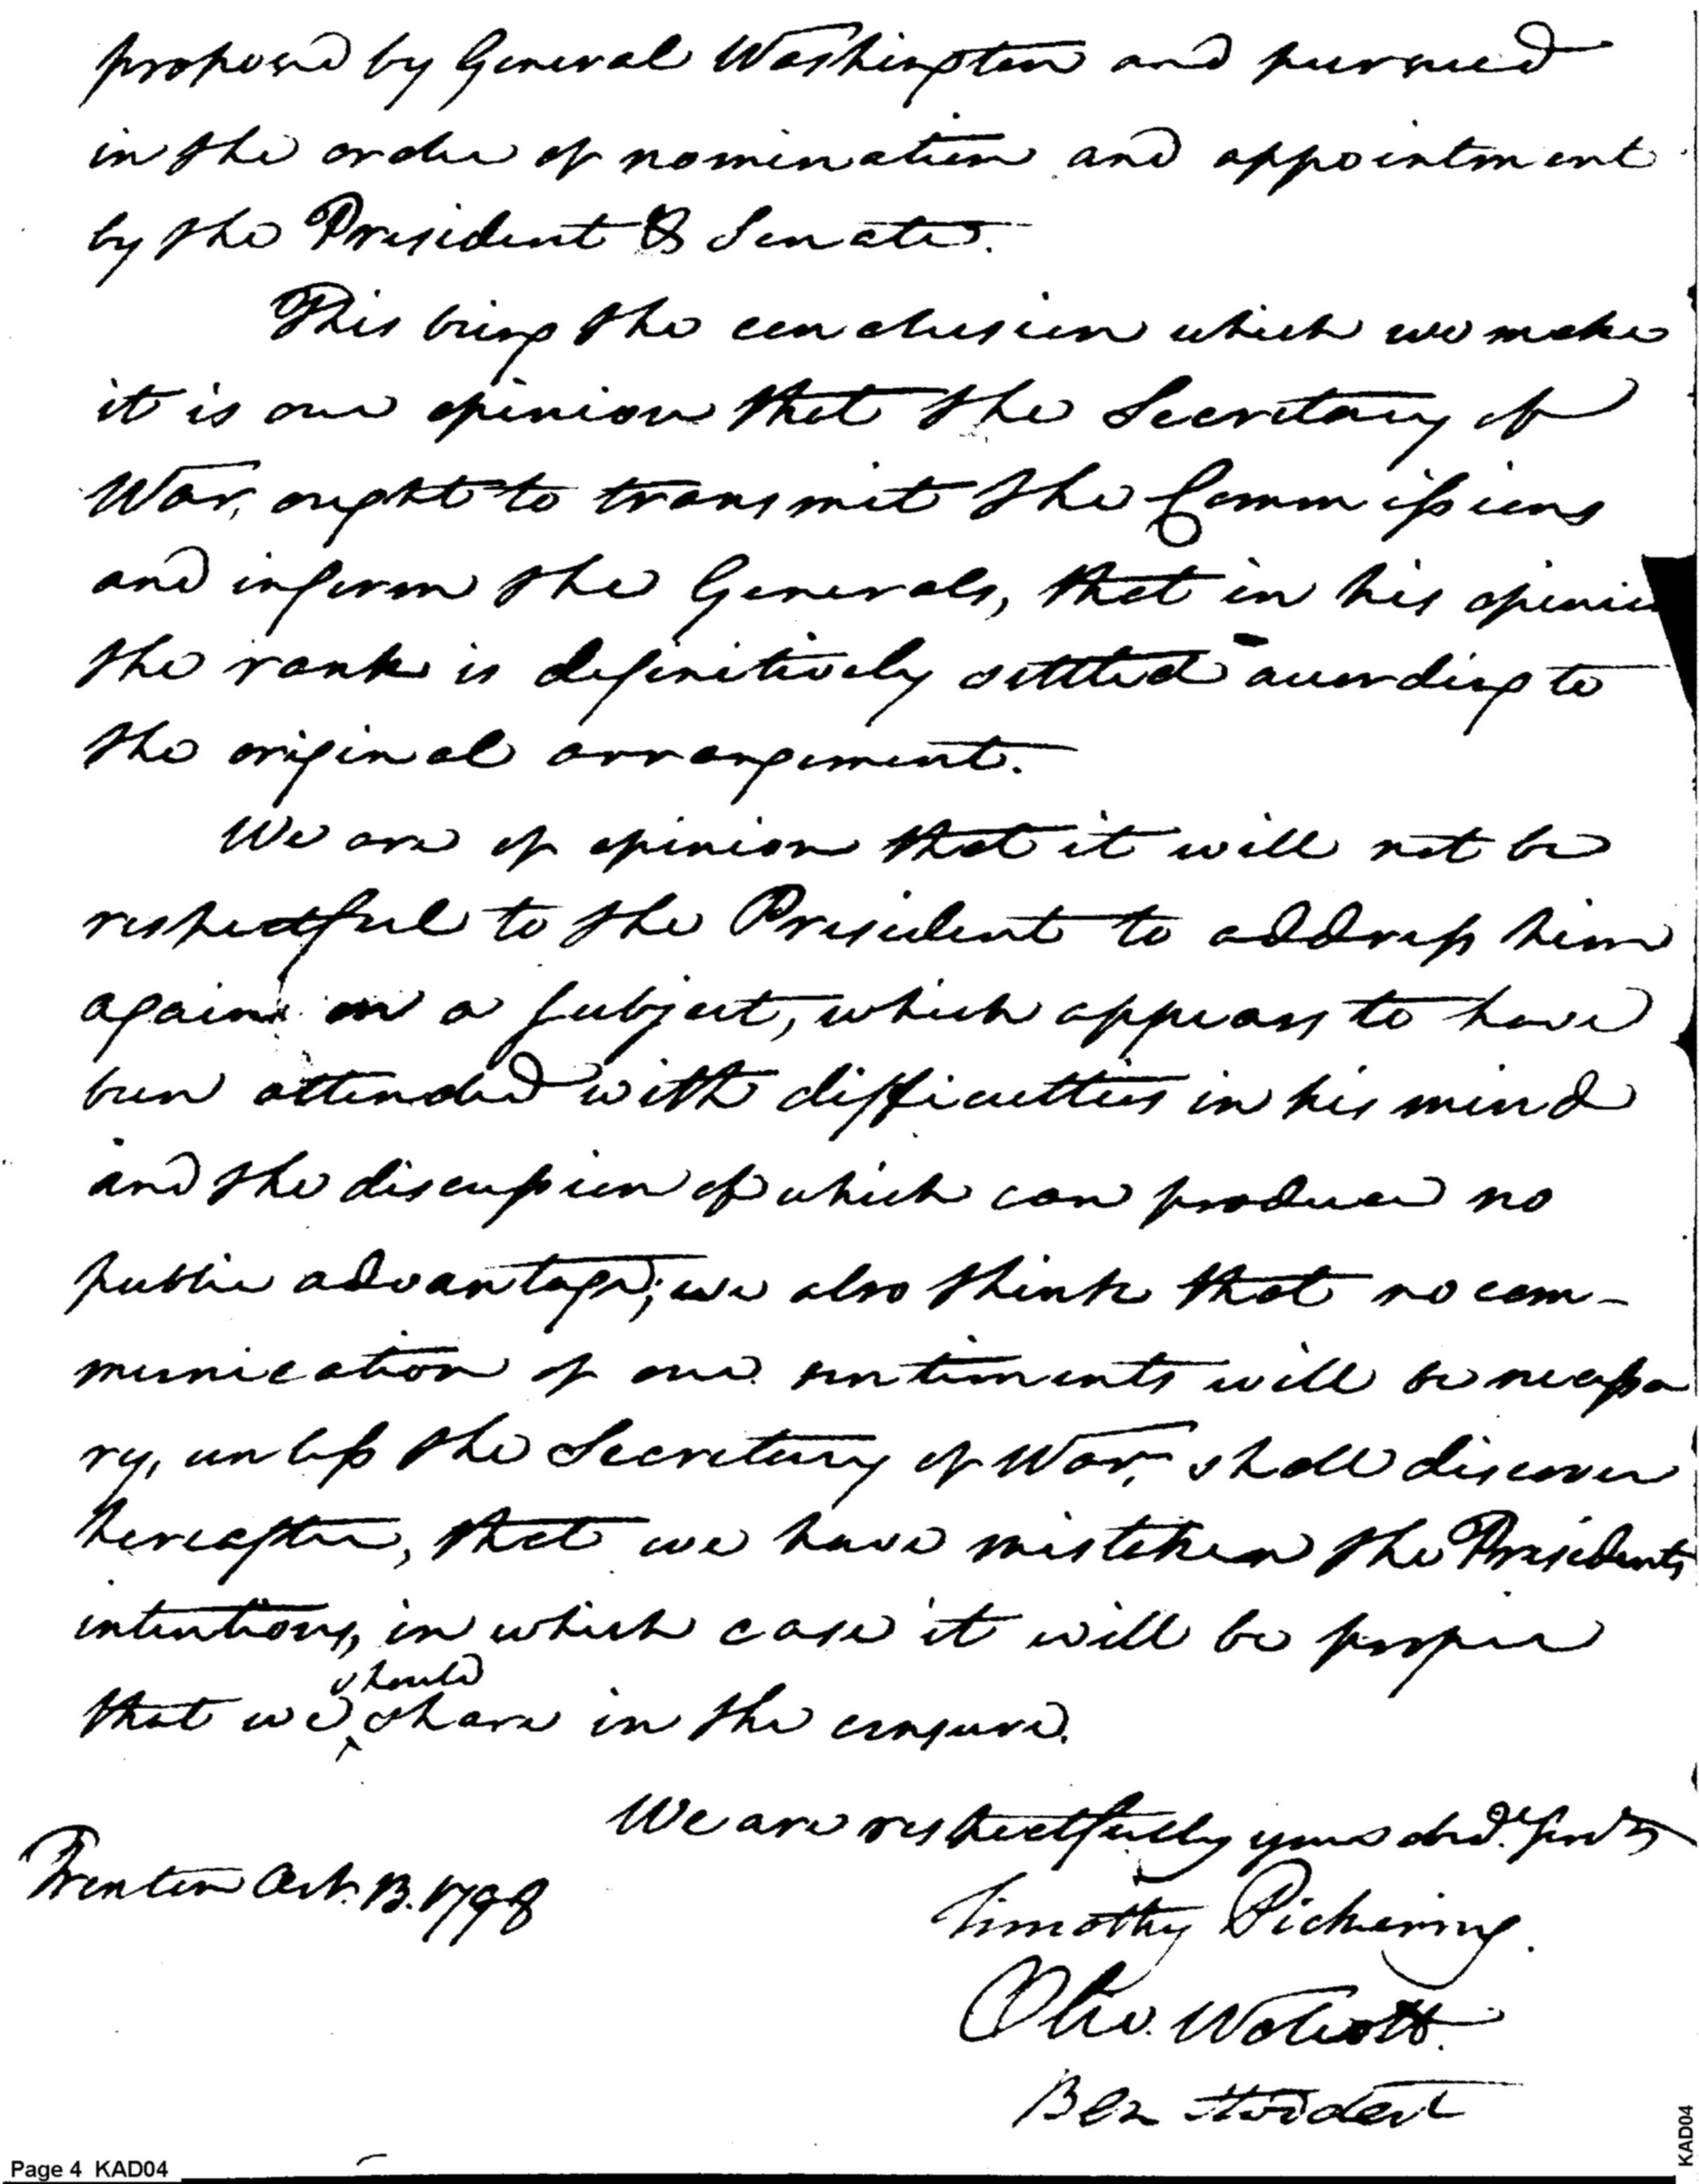 proposed by General Washington and pursued
in the order of nomination and appointment
by the President & Senate.
This being the conclusion which we make
it is our opinion that the Secretary of
War, ought to transmit the Commissions
and inform the Generals, that in his opinion
the rank is definitively settled according to
the original arrangement.
We are of opinion that it will not be
respectful to the President to address him
again on a subject, which appears to have
been attended with difficulties in his mind
and the discussion of which can produce no
public advantage; we also think that no com-
munication of our sentiments will be necessa
ry, unless the Secretary of War, shall discover
hereafter, that we have mistaken the Presidents
intentions, in which case it will be proper
should
that we share in the censure.
We are respectfully yours
Trenton Oct. 13. 1798
Timothy Pickering.
Oliv. Wolcott.
Ben Stoddert
Page 4 KAD04
KAD04